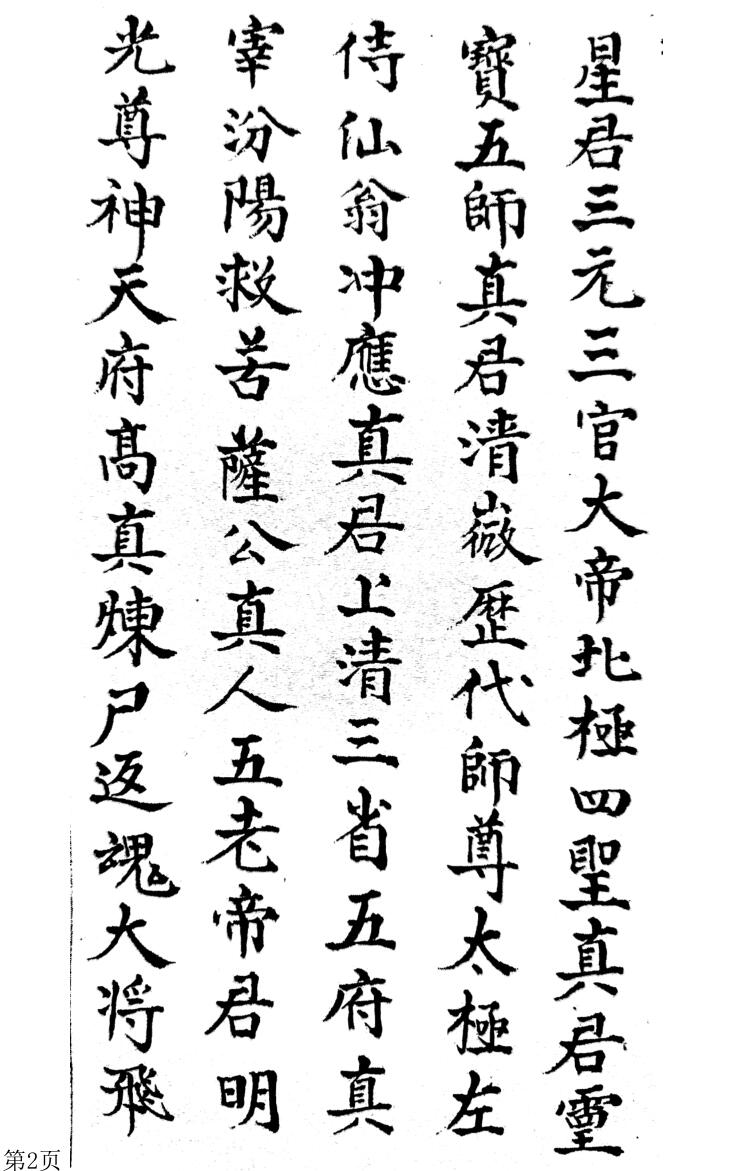 星君三元三官大帝北極四聖真君靈
寶五師真君清微歷代師尊太極左
侍仙翁冲應真君上清三省五府真
宰汾陽救苦薩公真人五老帝君明
光尊神天府髙真煉尸返魂大将飛
第2页